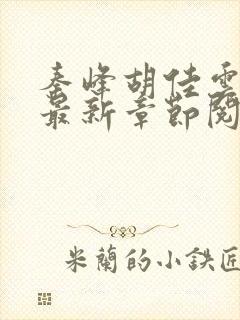 秦峰胡佳雲
最新章節閱
米蘭的小鉄匠